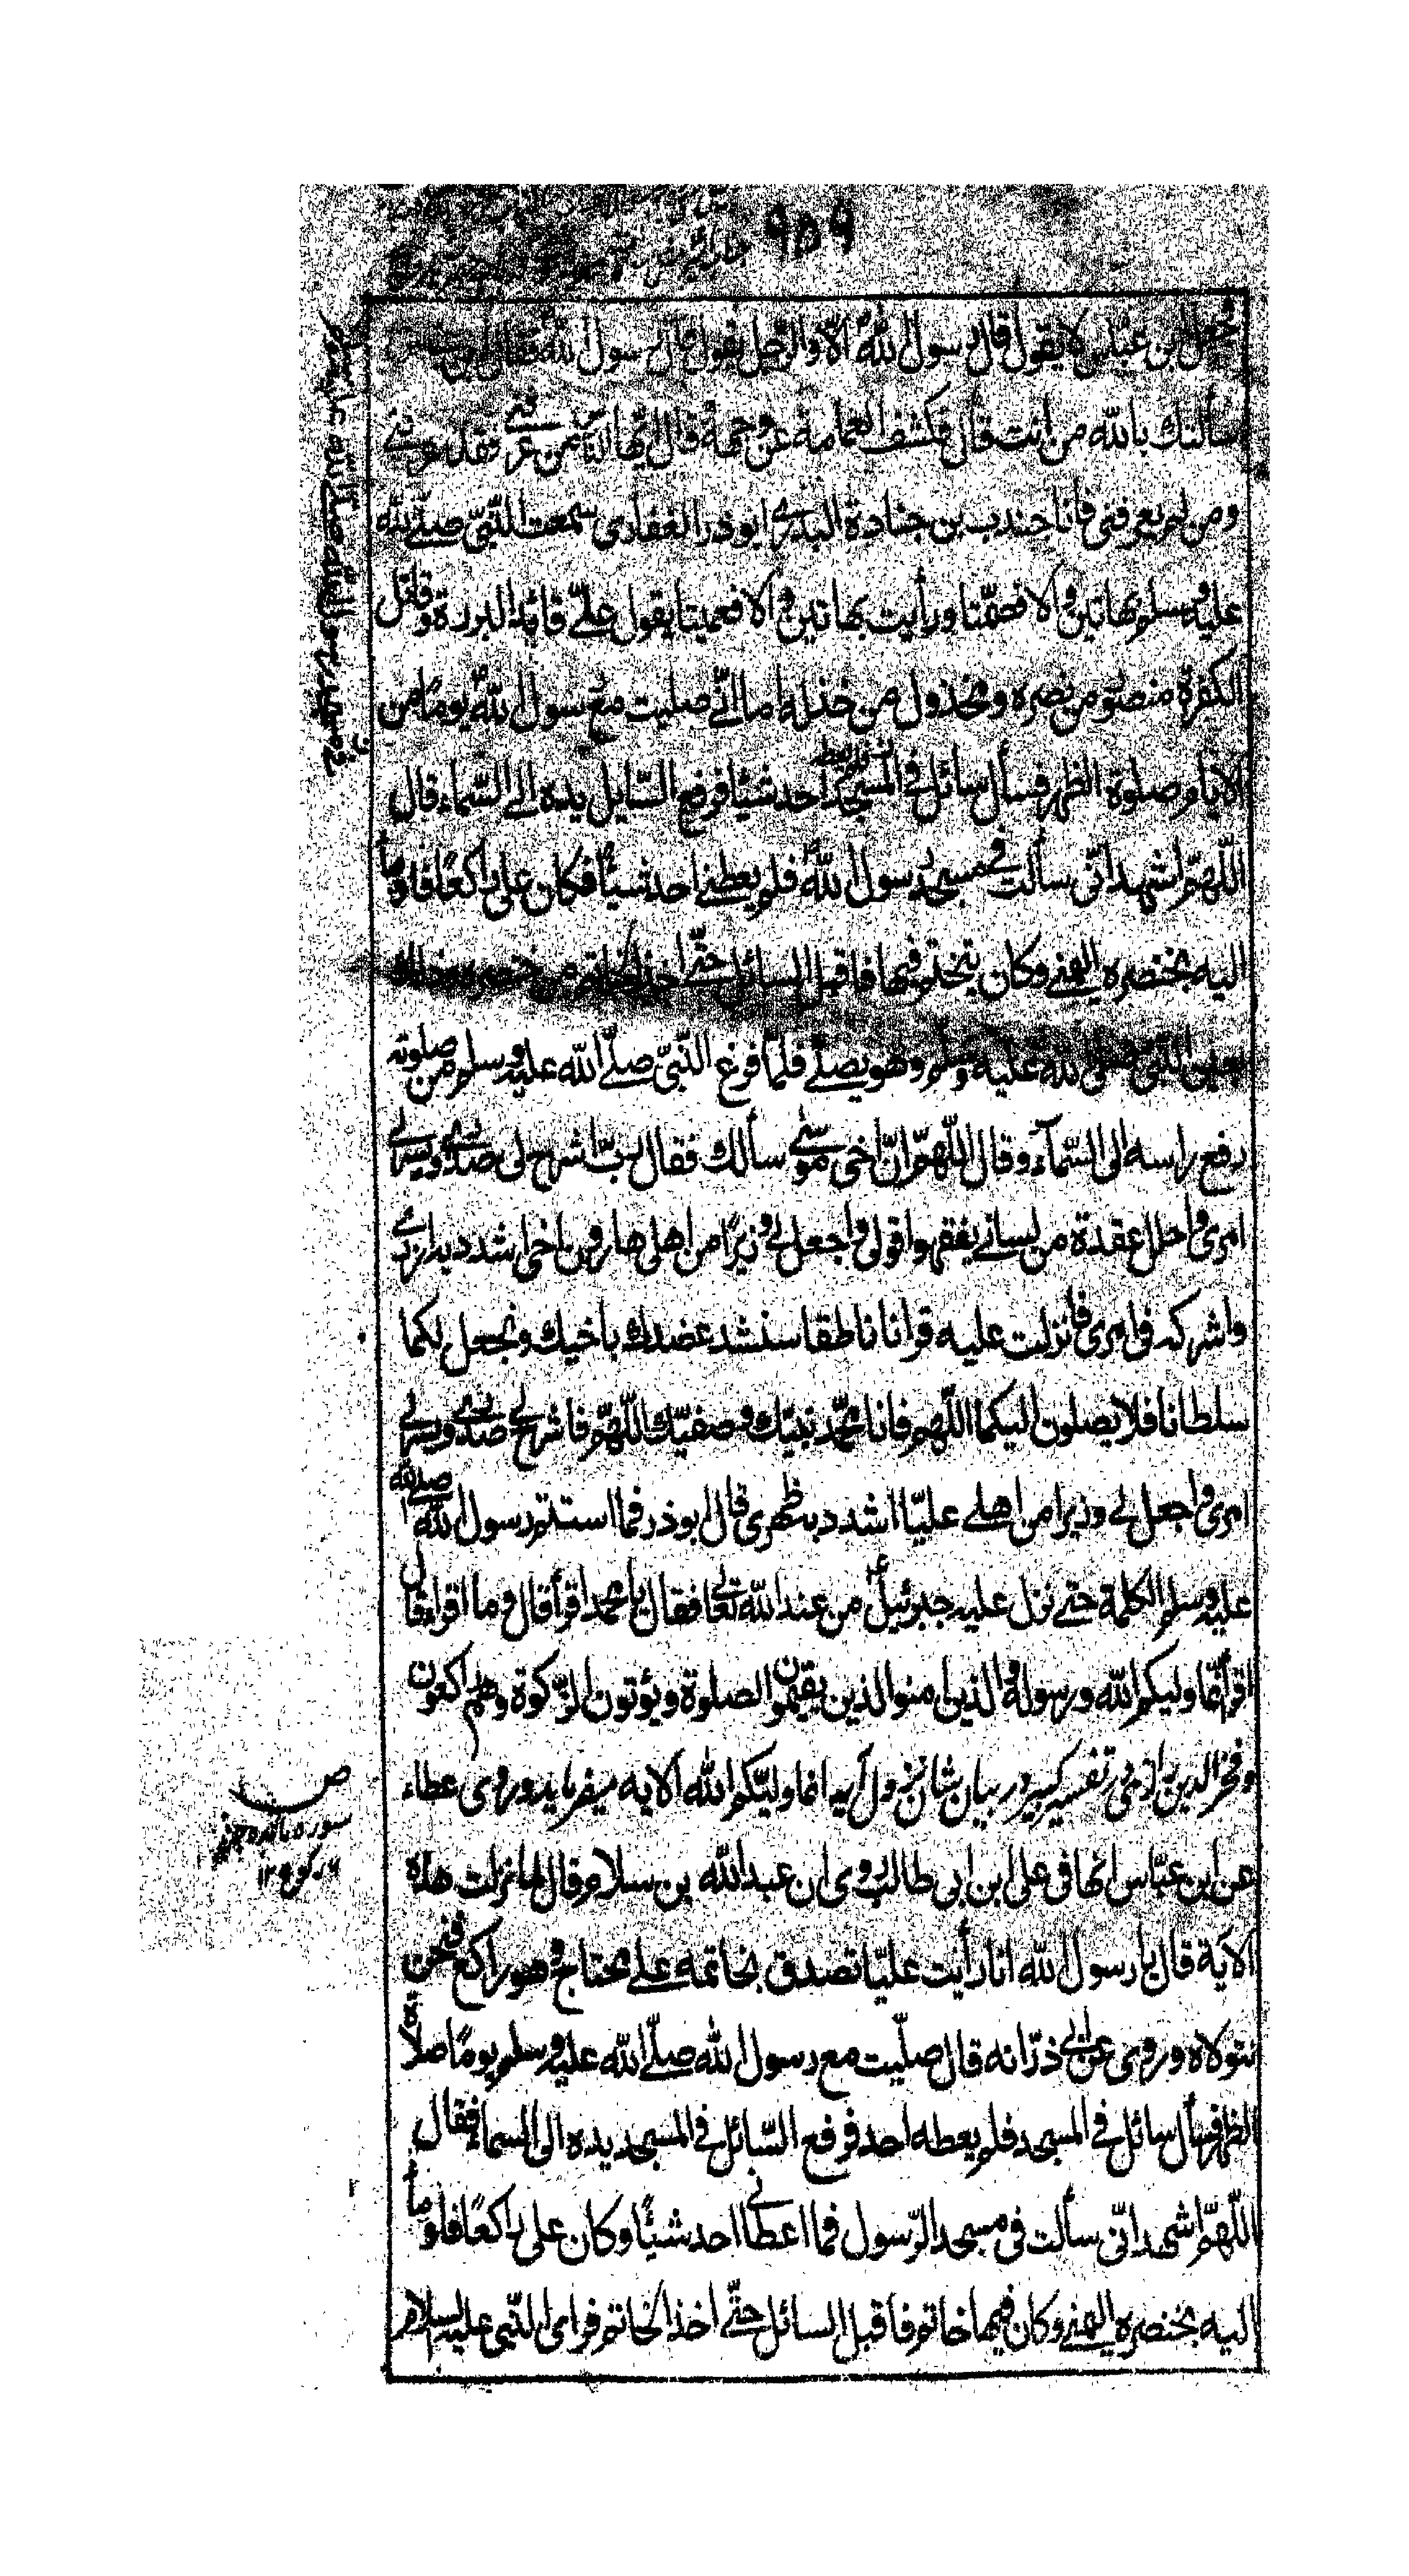 ۹۵۹
فجعل ابن عباس لا يقول قال رسول الله الا والرجل يقول قال رسول الله فقال ابن عباس
سألتك بالله من انت قال فكشف العمامة عن وجهه قال ايها الناس من عرفنى فقد عرفنى
ومن لم يعرفنى فانا جندب بن جنادة البدرى ابو ذر الغفارى سمعت النبى صلى الله
عليه وسلم بهاتين والا فصمّتا ورأيت بهاتين والا فعميتا يقول علىّ قائد البررة وقاتل
الكفرة منصور من نصره ومخذول من خذله اما انّى صليت مع رسول الله يومًا من
الايام صلوة الظهر فسأل سائل فى المسجد فلم يعطه احد شيئا فرفع السّايل يده الى السّماء قال
اللّهمّ اشهد انّى سألت فى مسجد رسول الله فلم يعطنى احد شيئًا فكان على راكعًا فاومأ
اليه بخنصره اليمنى وكان يتختم فيها فاقبل السائل حتّى اخذ الخاتم من خنصره وذلك
بعين النبى صلى الله عليه وسلم وهو يصلى فلمّا فرغ النّبىّ صلّى الله عليه وسلم من صلوته
رفع راسه الى السّمآء وقال اللّهمّ انّ اخى موسى سألك فقال ربّ اشرح لى صدرى ويسر لى
امرى واحلل عقدة من لسانى يفقهوا قولى واجعل لى وزيرًا من اهلى هارون اخى اشدد به ازرى
واشركه فى امرى فانزلت عليه قرانا ناطقا سنشد عضدك باخيك ونجعل لكما
سلطانا فلا يصلون اليكما اللّهم فانا محمّد نبيّك وصفيّك اللّهمّ فاشرح لى صدرى ويسر لى
امرى واجعل لى وزيرا من اهلى عليّا اشدد به ظهرى قال ابو ذر فما استتم رسول الله صلى الله
عليه وسلم الكلمة حتى نزل عليه جبرئيل من عند الله تعالى فقال يا محمد اقرأ قال وما اقراء قال
اقرأ انّما وليكم الله ورسوله والذين امنوا الذين يقيمون الصلوة ويؤتون الزّكوة وهم راكعون
و فخر الدين رازى در تفسير كبير در بيان شان نزول آيه انما وليّكم الله الايه ميفرمايد وروى عطاء
عن ابن عبّاس انّها فى على ابن ابى طالب روى ان عبد الله بن سلام قال لما نزلت هذه
الاية قال يا رسول الله انا رأيت عليّا تصدق بخاتمه على محتاج وهو راكع فنحن
نتولاه وروى عن ابى ذرّ انه قال صلّيت مع رسول الله صلّى الله عليه وسلم يومًا صلاة
الظهر فسأل سائل فى المسجد فلم يعطه احد فرفع السّائل فى المسجد يده الى السماء فقال
اللّهمّ اشهد انّى سألت فى مسجد الرّسول فما اعطانى احد شيئًا وكان على راكعًا فاومأ
اليه بخنصره اليمنى وكان فيها خاتم فاقبل السائل حتّى اخذ الخاتم فراى النّبى عليه السلام
ص
سوره مائده